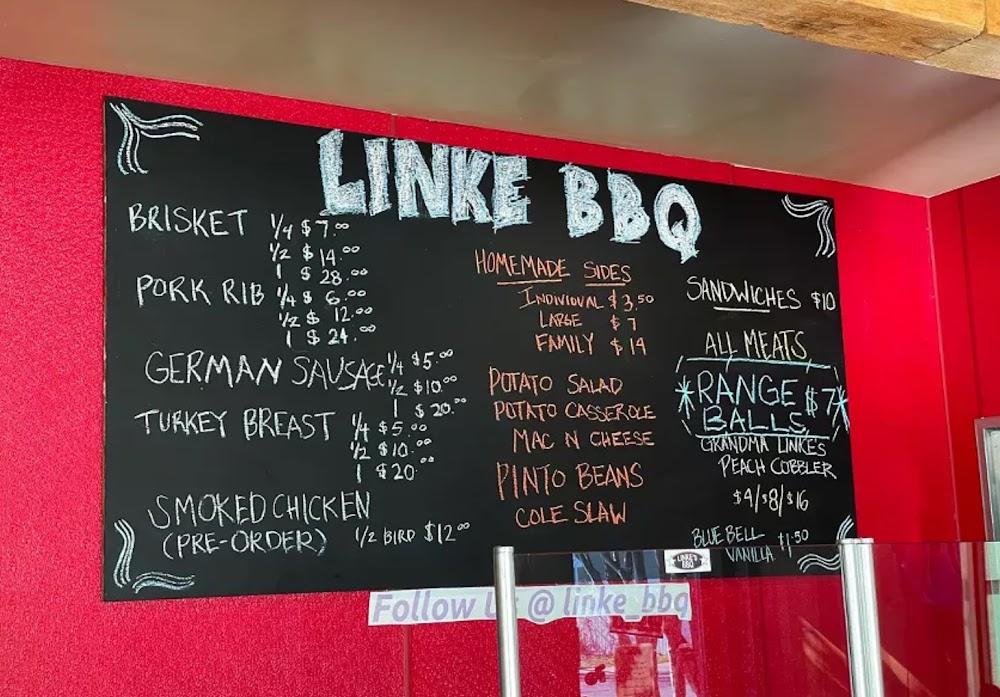 LINKE BBQ
BRISKET 1/4 $7.00
1/2 $14.00
1 $28.00
PORK RIB 1/4 $6.00
1/2 $12.00
1 $24.00
GERMAN SAUSAGE 1/4 $5.00
1/2 $10.00
1 $20.00
TURKEY BREAST 1/4 $5.00
1/2 $10.00
1 $20.00
SMOKED CHICKEN
(PRE-ORDER) 1/2 BIRD $12.00
HOMEMADE SIDES
INDIVIDUAL $3.50
LARGE $7
FAMILY $14
POTATO SALAD
POTATO CASSEROLE
MAC N CHEESE
PINTO BEANS
COLE SLAW
SANDWICHES $10
ALL MEATS
*RANGE $7*
BALLS
GRANDMA LINKE'S
PEACH COBBLER
$4/$8/$16
BLUE BELL $1.50
VANILLA
LINKE'S
BBQ
Follow Us @ linke_bbq